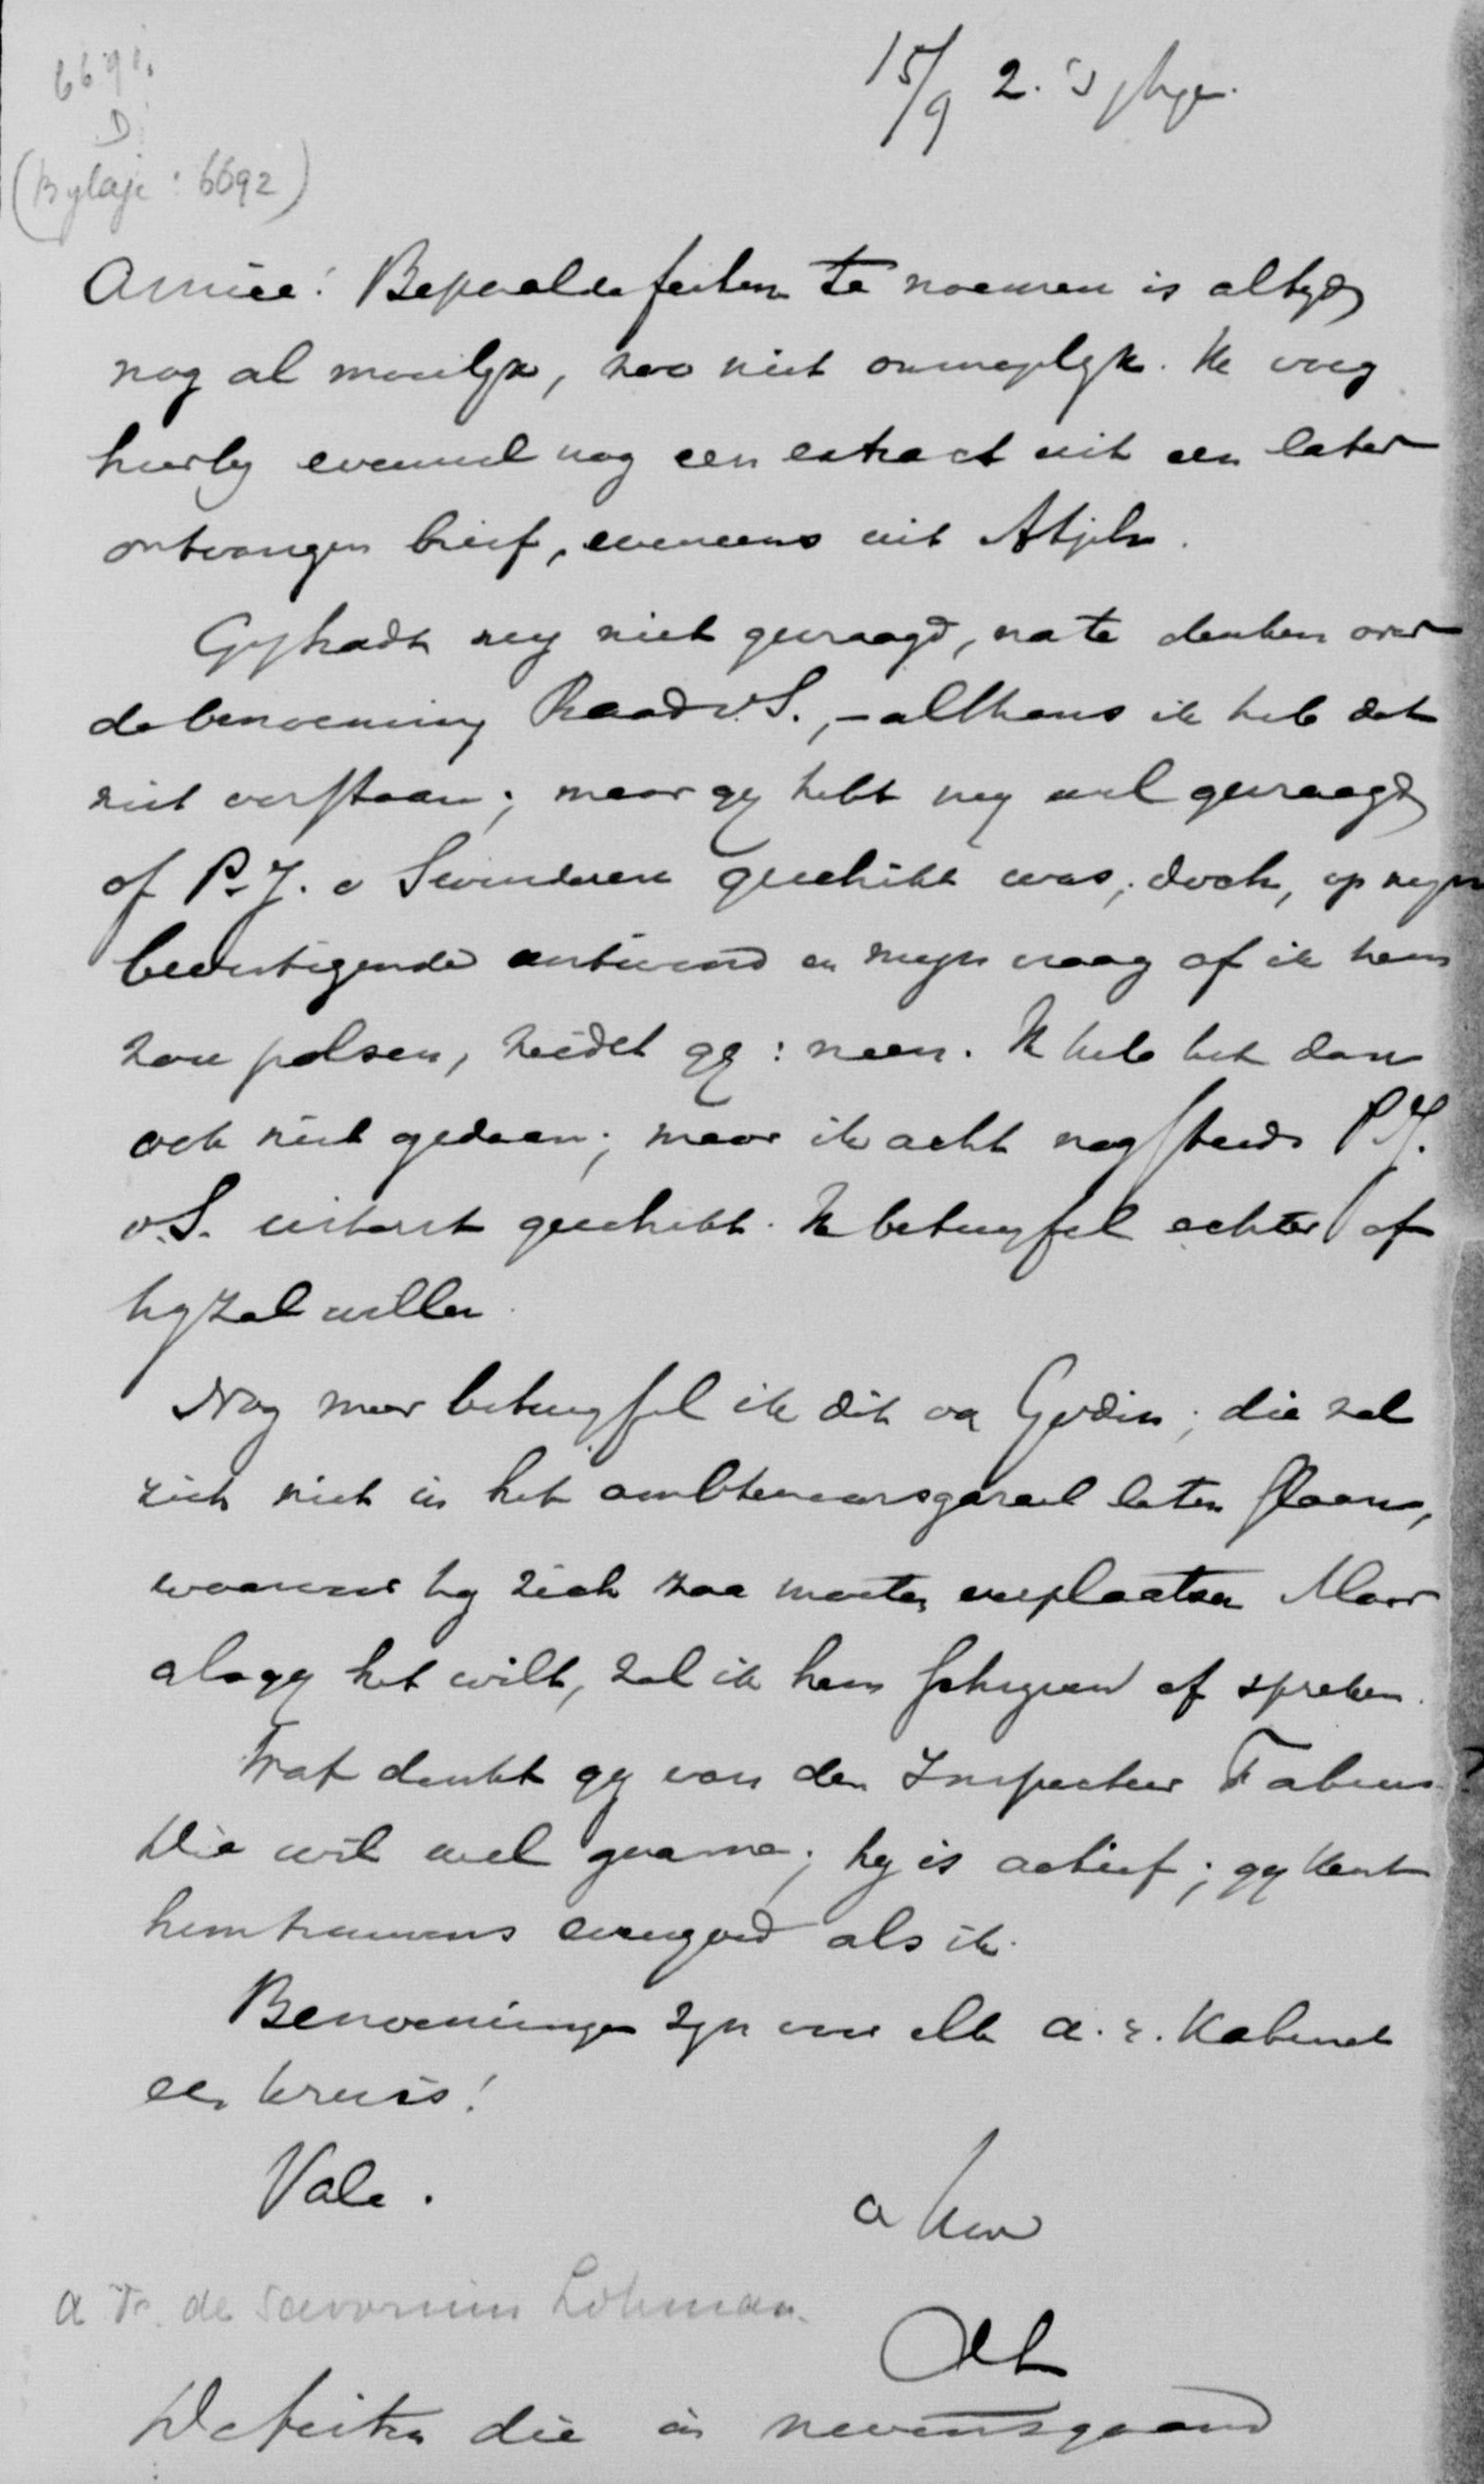 6691.
D
(Bylage : 6692)
15/9 2. 's
Amice! Bepaalde feiten te noemen is altyd
nog al moeilyk, zoo niet onmogelyk. Ik voeg
hierby evenwel nog een extract uit een later
ontvangen brief, eveneens uit Atjeh.
Gy hadt my niet gevraagd, na te denken over
de benoeming Raad v. S., – althans ik heb dat
niet verstaan; maar gy hebt my wel gevraagd
of P. J. v Swinderen geschikt was; doch, op myn
bevestigende antwoord en myn vraag of ik hem
zou polsen, zeidet gy: neen. Ik heb het dan
ook niet gedaan; maar ik acht nog steeds P. J.
v. S. uiterst geschikt. Ik betwyfel echter of
hy zal willen.
Nog meer betwyfel ik dit va Godin; die zal
zich niet in het ambtenaarsgareel laten slaan,
waarvoor hy zich zou moeten verplaatsen Maar
als gy het wilt, zal ik hem schryven of spreken.
Wat denkt gy van den Inspecteur Fabius?
Die wil wel gaarne; hy is actief; gy kent
hem trouwens evengoed als ik.
Benoemingen zyn voor elk a. r. Kabinet
een kruis!
Vale.
a Uw
a Fr. de Savornin Lohman.
De feiten die in nevensgaand